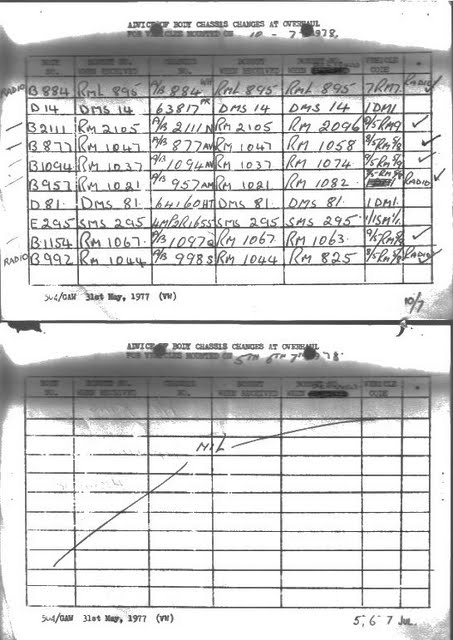 ADVICE OF BODY CHASSIS CHANGES AT OVERHAUL
FOR VEHICLES MOUNTED ON 10 - 7 - 1978.
BODY NO. BONNET NO. WHEN RECEIVED CHASSIS NO. BONNET WHEN RECEIVED BONNET NO. WHEN VEHICLE CODE
RADIO B884 RML 895 A/B 884 RML 895 RML 895 7RM7 RADIO ✓
D14 DMS 14 63817 DMS 14 DMS 14 1DM1
B2111 RM 2105 A/B 2111 N RM 2105 RM 2096 9/5RM9 ✓
B877 RM 1047 A/B 877 RM 1047 RM 1058 8/5RM8/8 ✓
B1094 RM 1037 A/B 1094 RM 1037 RM 1074 8/5RM8/8 ✓
B957 RM 1021 A/B 957 AM RM 1021 RM 1082 RADIO ✓
D81 DMS 81 64160 HT DMS 81 DMS 81 1DM1
E295 SMS 295 4MP2R1655 SMS 295 SMS 295 1/1SM1/1
B1154 RM 1067 A/B 1097 Q RM 1067 RM 1063 9/5RM8/8 ✓
RADIO B992 RM 1044 A/B 998 S RM 1044 RM 825 8/5RM8/8 RADIO ✓
504/GAW 31st May, 1977 (VW) 10/7
ADVICE OF BODY CHASSIS CHANGES AT OVERHAUL
FOR VEHICLES MOUNTED ON 5TH 6TH 7TH 1978.
BODY NO. BONNET NO. WHEN RECEIVED CHASSIS NO. BONNET WHEN RECEIVED BONNET NO. WHEN VEHICLE CODE
NIL
504/GAW 31st May, 1977 (VW) 5, 6 7 JUL.